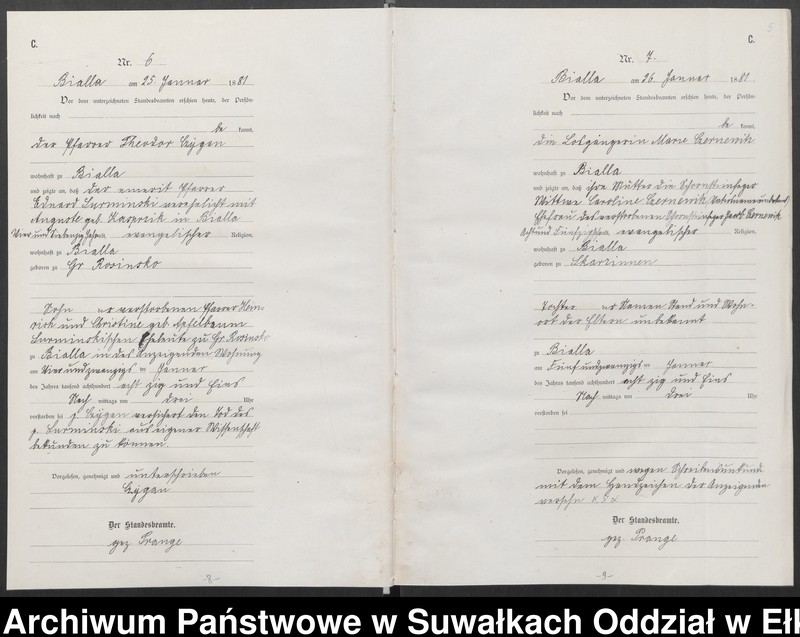 C.
Nr. 6
Bialla am 25. Januar 1881
Vor dem unterzeichneten Standesbeamten erschien heute, der Persön-
lichkeit nach
be kannt,
der Pfarrer Theodor Czygan
wohnhaft zu Bialla
und zeigte an, daß der emerit Pfarrer
Eduard Surminski verehelicht mit
Auguste geb. Kasprzik in Bialla
Vier und Siebenzig Jahre alt, evangelischer Religion,
wohnhaft zu Bialla
geboren zu Gr Rosinsko
Sohn der verstorbenen Pfarrer Hein-
rich und Christine geb.
Surminskischen Eheleute zu Gr. Rosinsko
zu Bialla in des Anzeigenden Wohnung
am Vier und zwanzigs ten Januar
des Jahres tausend achthundert acht zig und Eins
Nach mittags um drei Uhr
verstorben sei p. Czygan versichert den Tod des
p. Surminski aus eigener Wissenschaft
bekunden zu können.
Vorgelesen, genehmigt und unterschrieben
Czygan
Der Standesbeamte.
gez Prange
-8-
5
C.
Nr. 7.
Bialla am 26 Januar 1881
Vor dem unterzeichneten Standesbeamten erschien heute, der Persön-
lichkeit nach
be kannt,
die Losgängerin Marie Czernewik
wohnhaft zu Bialla
und zeigte an, daß ihre Mutter die Schornsteinfeger
Wittwe Caroline Czernewik
Ehefrau des verstorbenen Schornsteinfeger Jacob Czernewik
Acht und Fünfzig Jahre alt, evangelischer Religion,
wohnhaft zu Bialla
geboren zu Skarzinnen
Tochter der Namen Stand und Wohn-
ort der Eltern unbekannt
zu Bialla
am Fünf und zwanzigs ten Januar
des Jahres tausend achthundert acht zig und Eins
Nach mittags um drei Uhr
verstorben sei
Vorgelesen, genehmigt und wegen Schreibensunkunde
mit dem Handzeichen der Anzeigenden
versehn
Der Standesbeamte.
gez Prange
-9-
Archiwum Państwowe w Suwałkach Oddział w Ełk